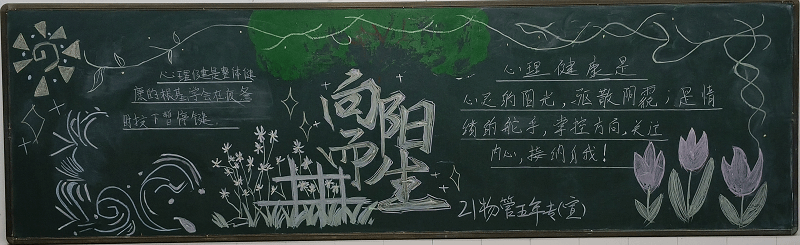 心理健康是整体健
康的根基,学会在疲惫
时按下暂停键.
向阳
而生
心理健康是
心灵的阳光,驱散阴霾;是情
绪的舵手,掌控方向,关注
内心,接纳自我!
21物管五年专(宣)